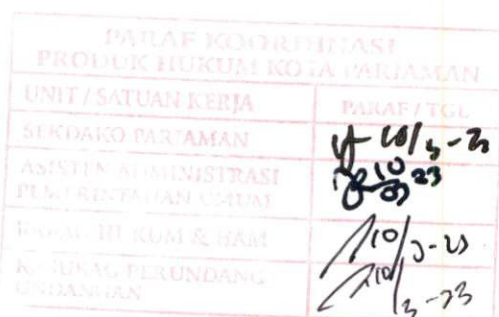 PARAF KOORDINASI
PRODUK HUKUM KOTA PARIAMAN
UNIT / SATUAN KERJA PARAF / TGL
SEKDAKO PARIAMAN 10/3-23
ASISTEN ADMINISTRASI
PEMERINTAHAN UMUM 10/03 23
KABAG HUKUM & HAM 10/3-23
KASUBAG PERUNDANG 10/3-23
UNDANGAN